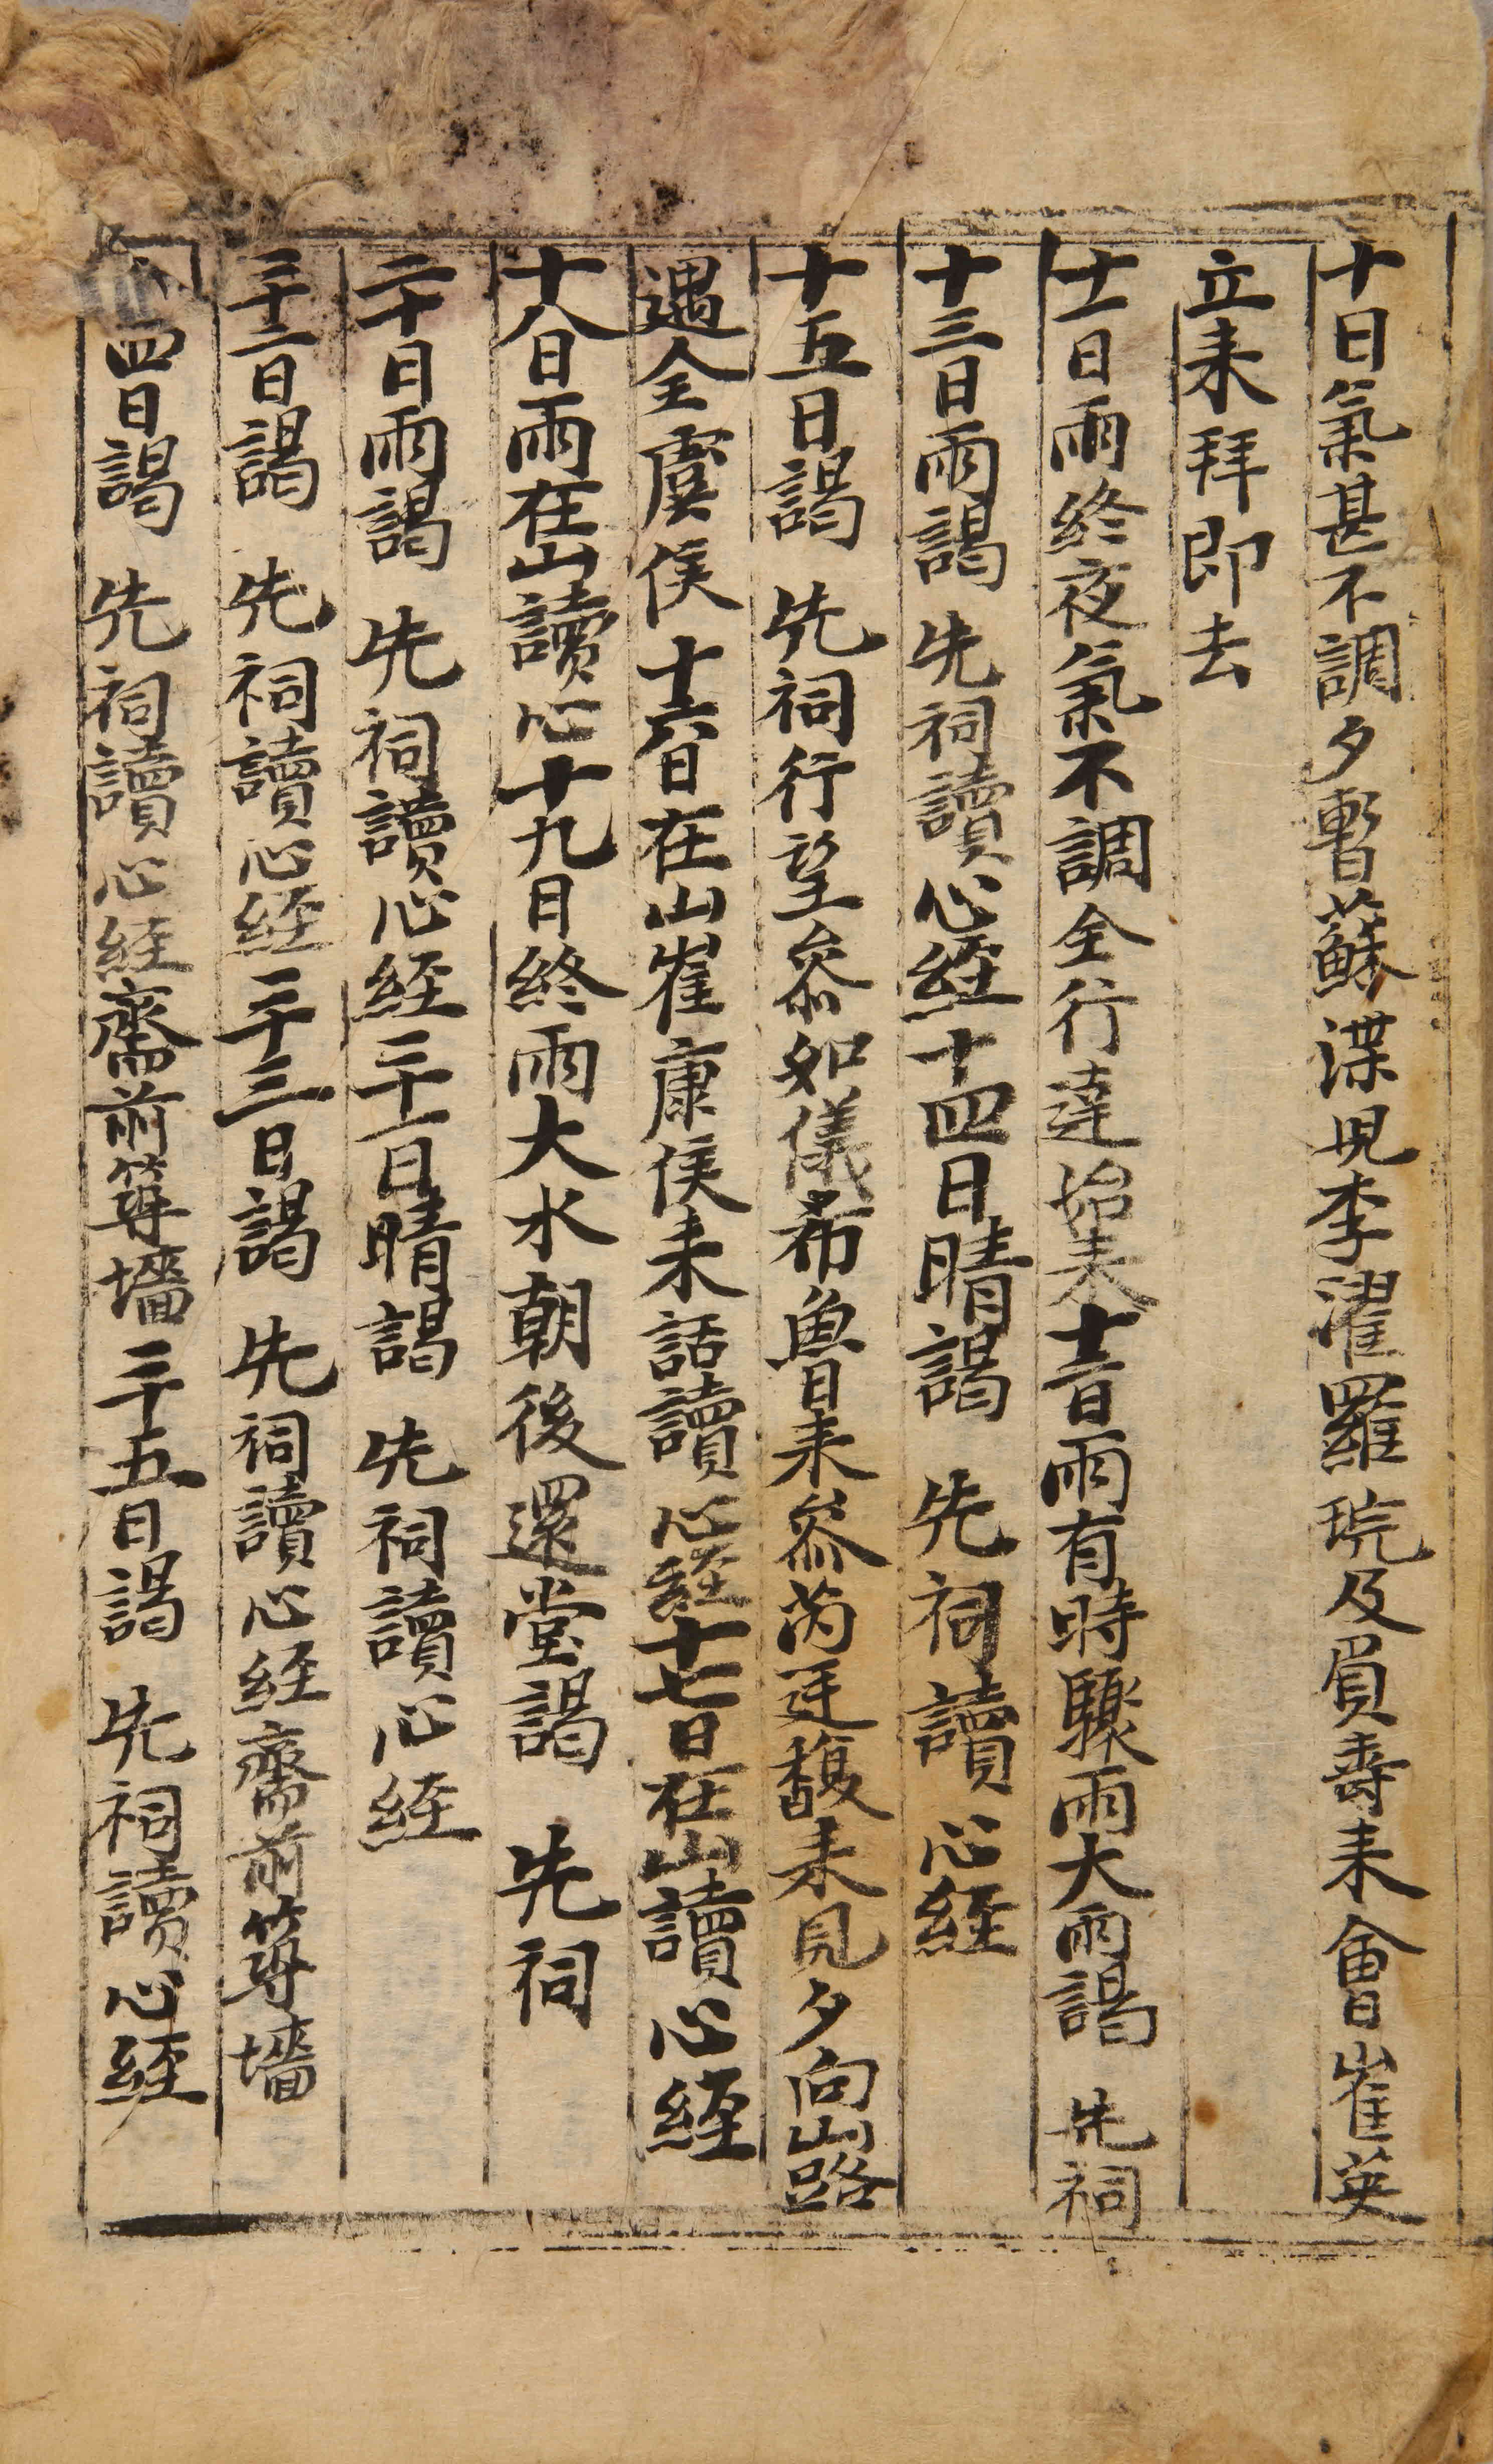 十日氣甚不調夕暫蘇渫見李濯羅琓及員壽来會崔英
立来拜即去
十一日雨終夜氣不調全行達始来十二日雨有時驟雨大雨謁 先祠
十三日雨謁 先祠讀心經十四日晴謁 先祠讀心經
十五日謁 先祠行望叅如儀希魯日来叅芮廷馥来見夕向山路
遇全虞侯十六日在山崔康侯来話讀心經十七日在山讀心經
十八日雨在山讀心十九日終雨大水朝後還堂謁 先祠
二十日雨謁 先祠讀心經二十一日晴謁 先祠讀心經
二十二日謁 先祠讀心經二十三日謁 先祠讀心經齋前築墻
四日謁 先祠讀心經齋前築墻二十五日謁 先祠讀心經